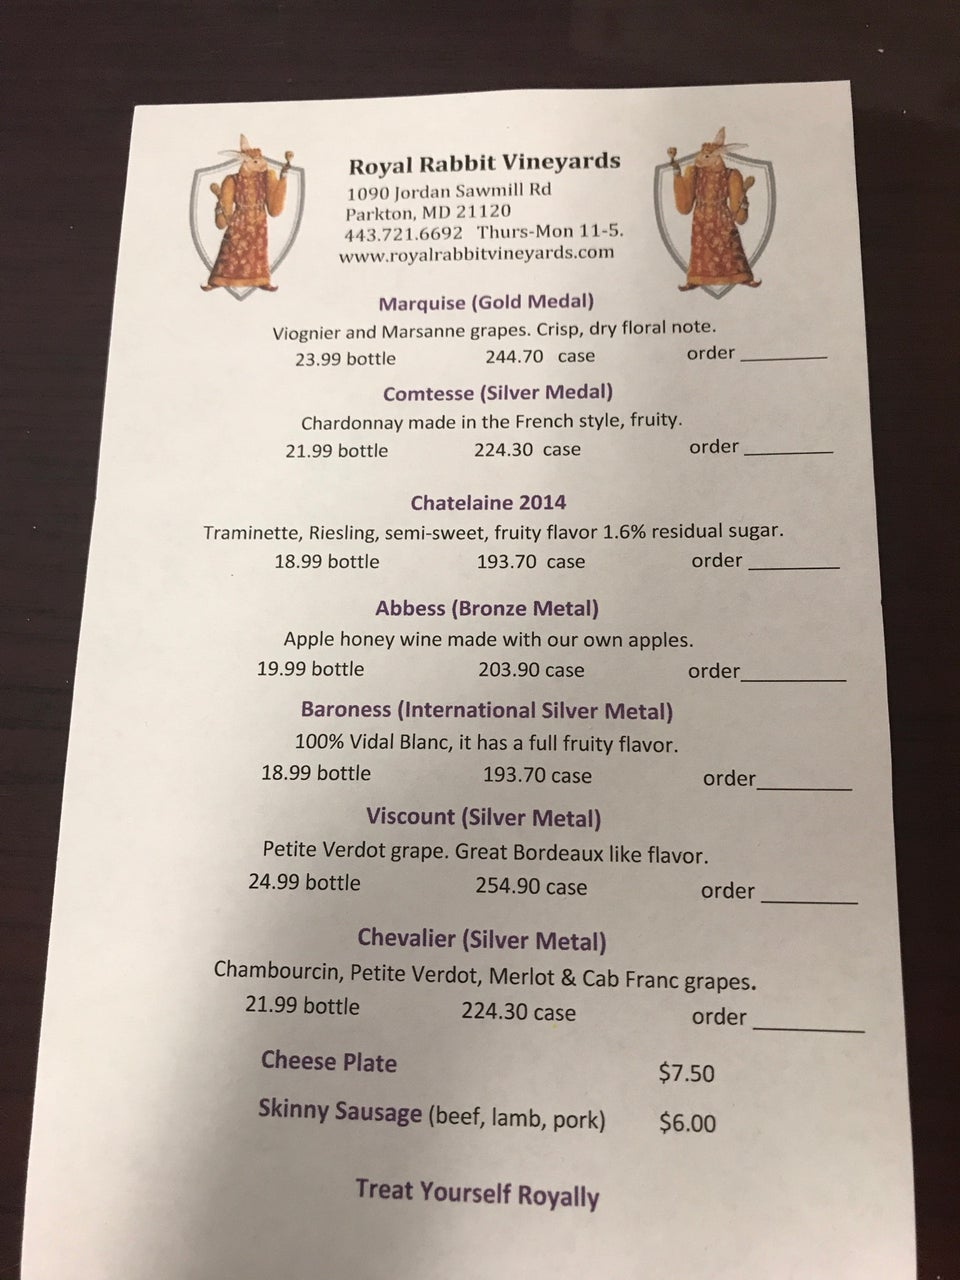 Royal Rabbit Vineyards
1090 Jordan Sawmill Rd
Parkton, MD 21120
443.721.6692 Thurs-Mon 11-5.
www.royalrabbitvineyards.com
Marquise (Gold Medal)
Viognier and Marsanne grapes. Crisp, dry floral note.
23.99 bottle 244.70 case order ________
Comtesse (Silver Medal)
Chardonnay made in the French style, fruity.
21.99 bottle 224.30 case order ________
Chatelaine 2014
Traminette, Riesling, semi-sweet, fruity flavor 1.6% residual sugar.
18.99 bottle 193.70 case order ________
Abbess (Bronze Metal)
Apple honey wine made with our own apples.
19.99 bottle 203.90 case order_________
Baroness (International Silver Metal)
100% Vidal Blanc, it has a full fruity flavor.
18.99 bottle 193.70 case order________
Viscount (Silver Metal)
Petite Verdot grape. Great Bordeaux like flavor.
24.99 bottle 254.90 case order ________
Chevalier (Silver Metal)
Chambourcin, Petite Verdot, Merlot & Cab Franc grapes.
21.99 bottle 224.30 case order _________
Cheese Plate $7.50
Skinny Sausage (beef, lamb, pork) $6.00
Treat Yourself Royally